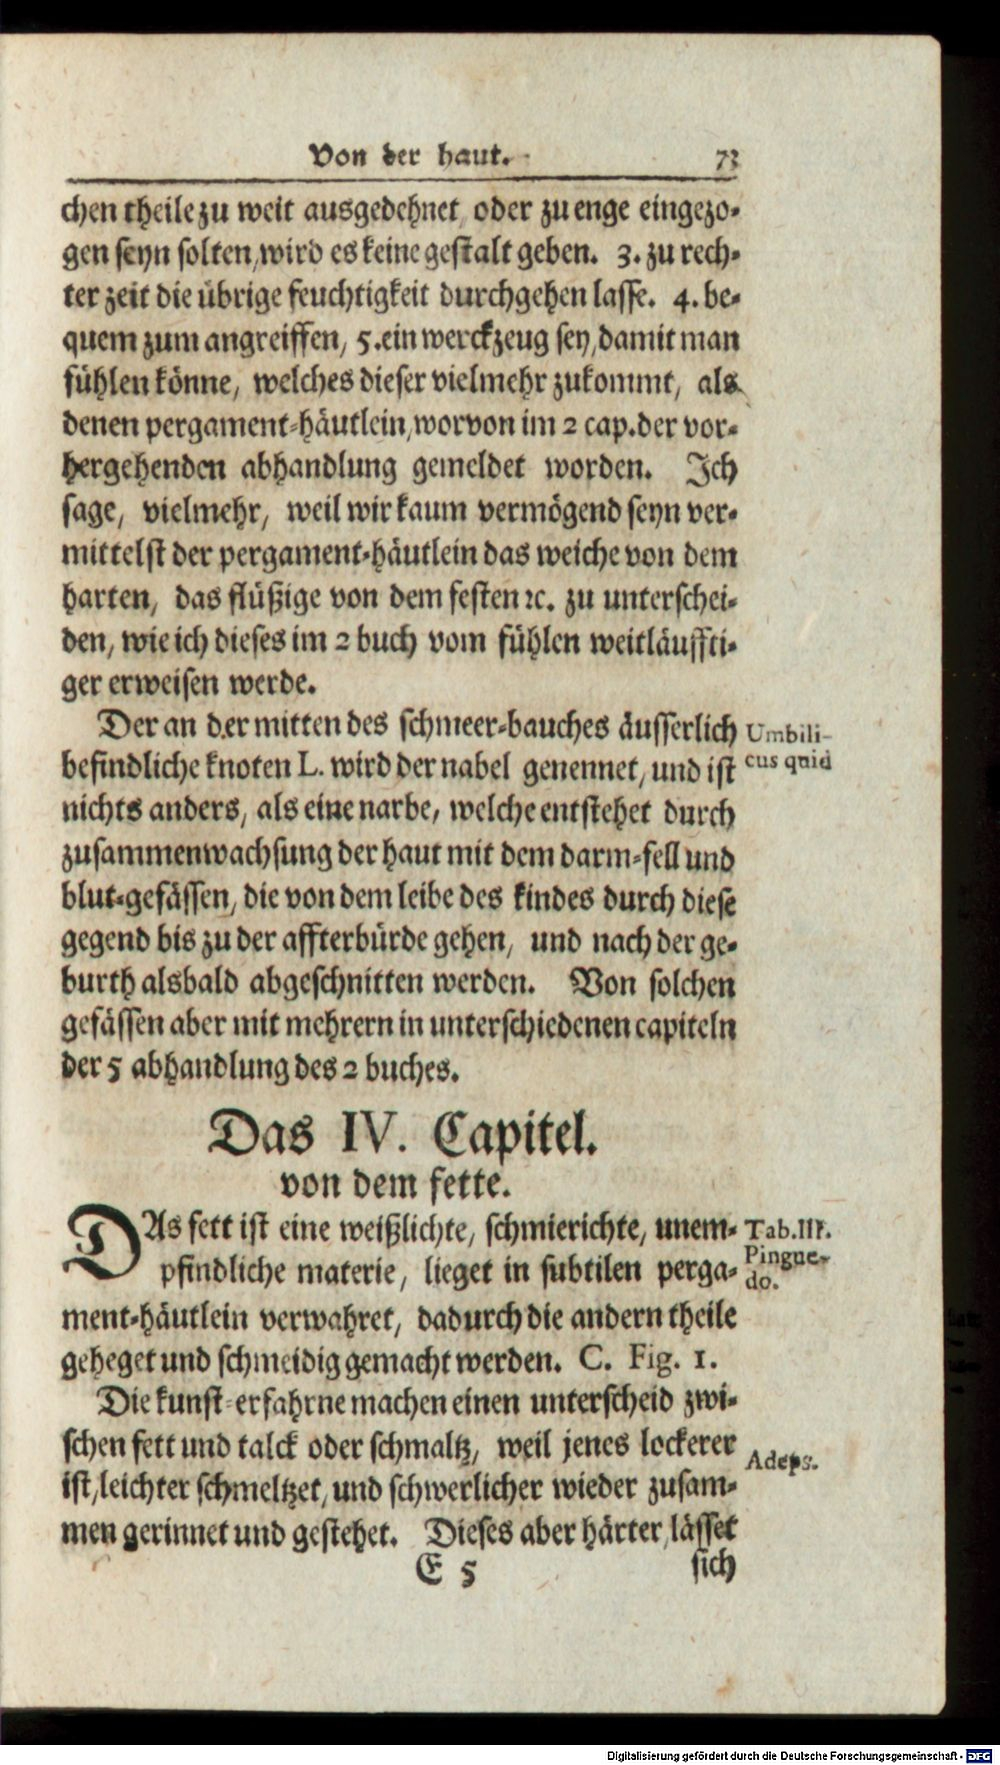 Von der haut. 73
chen theile zu weit ausgedehnet oder zu enge eingezo-
gen seyn solten, wird es keine gestalt geben. 3. zu rech-
ter zeit die übrige feuchtigkeit durchgehen lasse. 4. be-
quem zum angreiffen, 5. ein werckzeug sey, damit man
fühlen könne, welches dieser vielmehr zukommt, als
denen pergament-häutlein, worvon im 2 cap. der vor-
hergehenden abhandlung gemeldet worden. Ich
sage, vielmehr, weil wir kaum vermögend seyn ver-
mittelst der pergament-häutlein das weiche von dem
harten, das flüßige von dem festen ꝛc. zu unterschei-
den, wie ich dieses im 2 buch vom fühlen weitläuffti-
ger erweisen werde.
Der an der mitten des schmeer-bauches äusserlich
Umbili-
befindliche knoten L. wird der nabel genennet, und ist
cus quid
nichts anders, als eine narbe, welche entstehet durch
zusammenwachsung der haut mit dem darm-fell und
blut-gefässen, die von dem leibe des kindes durch diese
gegend bis zu der affterbürde gehen, und nach der ge-
burth alsbald abgeschnitten werden. Von solchen
gefässen aber mit mehrern in unterschiedenen capiteln
der 5 abhandlung des 2 buches.
Das IV. Capitel.
von dem fette.
DAs fett ist eine weißlichte, schmierichte, unem-
Tab. III.
pfindliche materie, lieget in subtilen perga-
Pingue-
do.
ment-häutlein verwahret, dadurch die andern theile
geheget und schmeidig gemacht werden. C. Fig. 1.
Die kunst-erfahrne machen einen unterscheid zwi-
schen fett und talck oder schmaltz, weil jenes lockerer
Adeps.
ist, leichter schmeltzet, und schwerlicher wieder zusam-
men gerinnet und gestehet. Dieses aber härter, lässet
E 5 sich
Digitalisierung gefördert durch die Deutsche Forschungsgemeinschaft - DFG